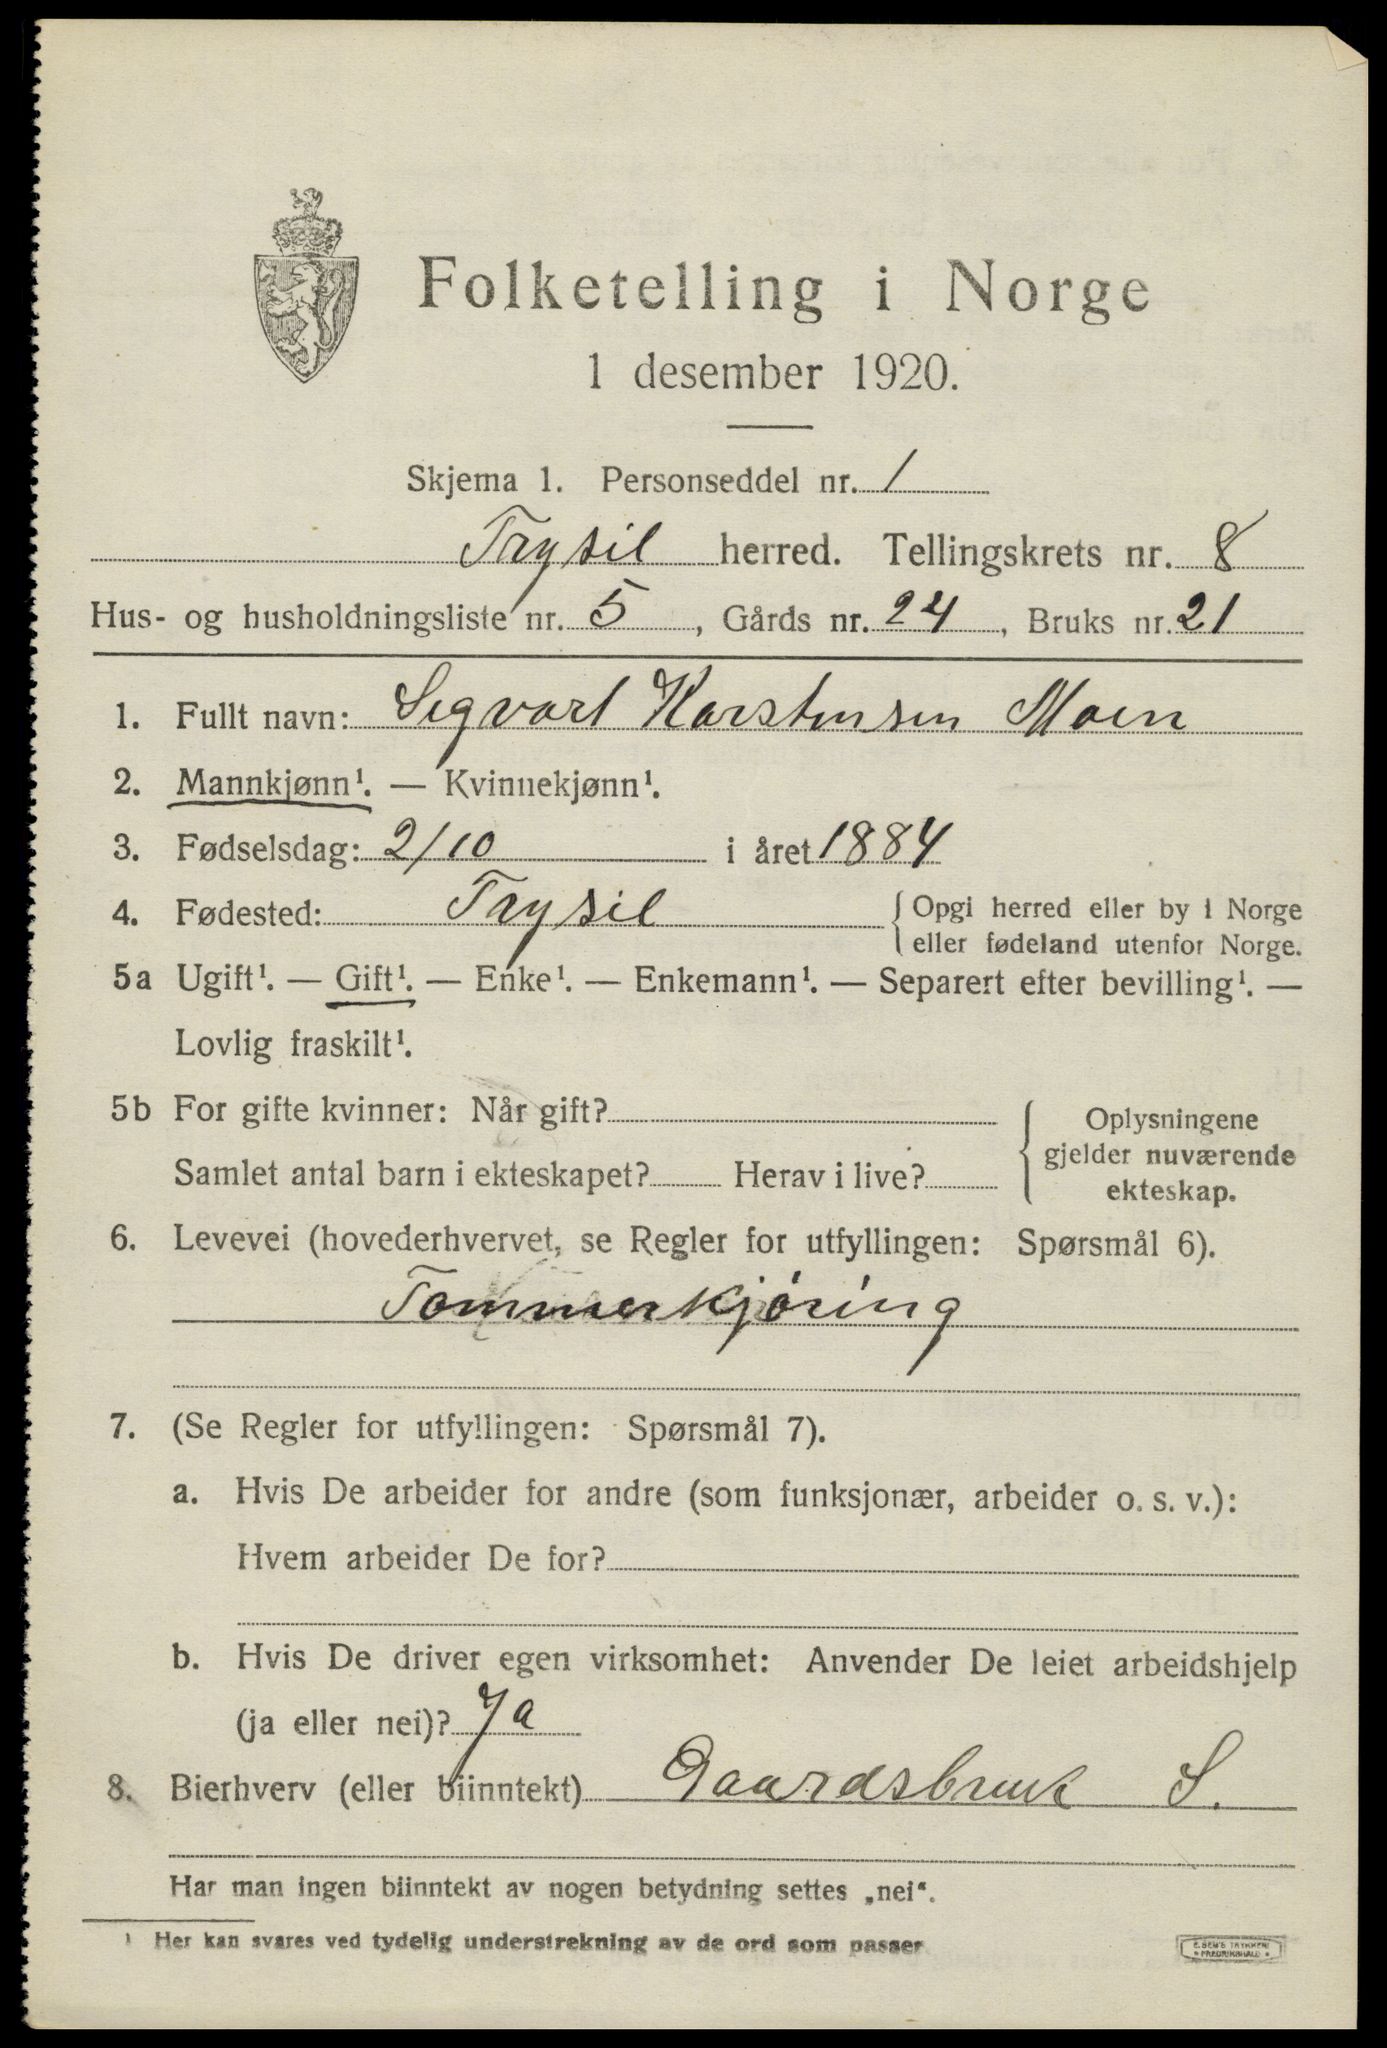 Folketelling i Norge
1 desember 1920.
Skjema 1. Personseddel nr. 1
Trysil herred. Tellingskrets nr. 8
Hus- og husholdningsliste nr. 5, Gårds nr. 24, Bruks nr. 21
1. Fullt navn: Sigvart Karstensen Moen
2. Mannkjønn¹. — Kvinnekjønn¹.
3. Fødselsdag: 2/10 i året 1884
4. Fødested: Trysil { Opgi herred eller by i Norge
eller fødeland utenfor Norge.
5a Ugift¹. — Gift¹. — Enke¹. — Enkemann¹. — Separert efter bevilling¹. —
Lovlig fraskilt¹.
5b For gifte kvinner: Når gift?
Samlet antal barn i ekteskapet? Herav i live?
{ Oplysningene
gjelder nuværende
ekteskap.
6. Levevei (hovederhvervet, se Regler for utfyllingen: Spørsmål 6).
Tømmerkjøring
7. (Se Regler for utfyllingen: Spørsmål 7).
a. Hvis De arbeider for andre (som funksjonær, arbeider o. s. v.):
Hvem arbeider De for?
b. Hvis De driver egen virksomhet: Anvender De leiet arbeidshjelp
(ja eller nei)? Ja
8. Bierhverv (eller biinntekt) Gaardsbruk S.
Har man ingen biinntekt av nogen betydning settes „nei“.
¹ Her kan svares ved tydelig understrekning av de ord som passer
E. SEM'S TRYKKERI
• FREDRIKSHALD •